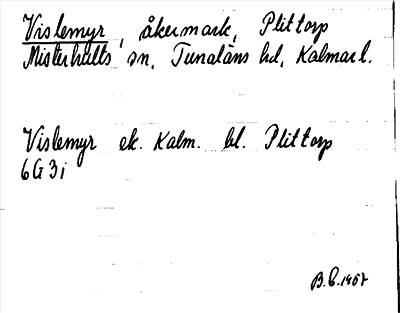 Vislemyr, åkermark, Plittorp
Misterhults sn, Tunaläns hd, Kalmar l.
Vislemyr ek. Kalm. bl. Plittorp
6G 3i
B.E. 1967